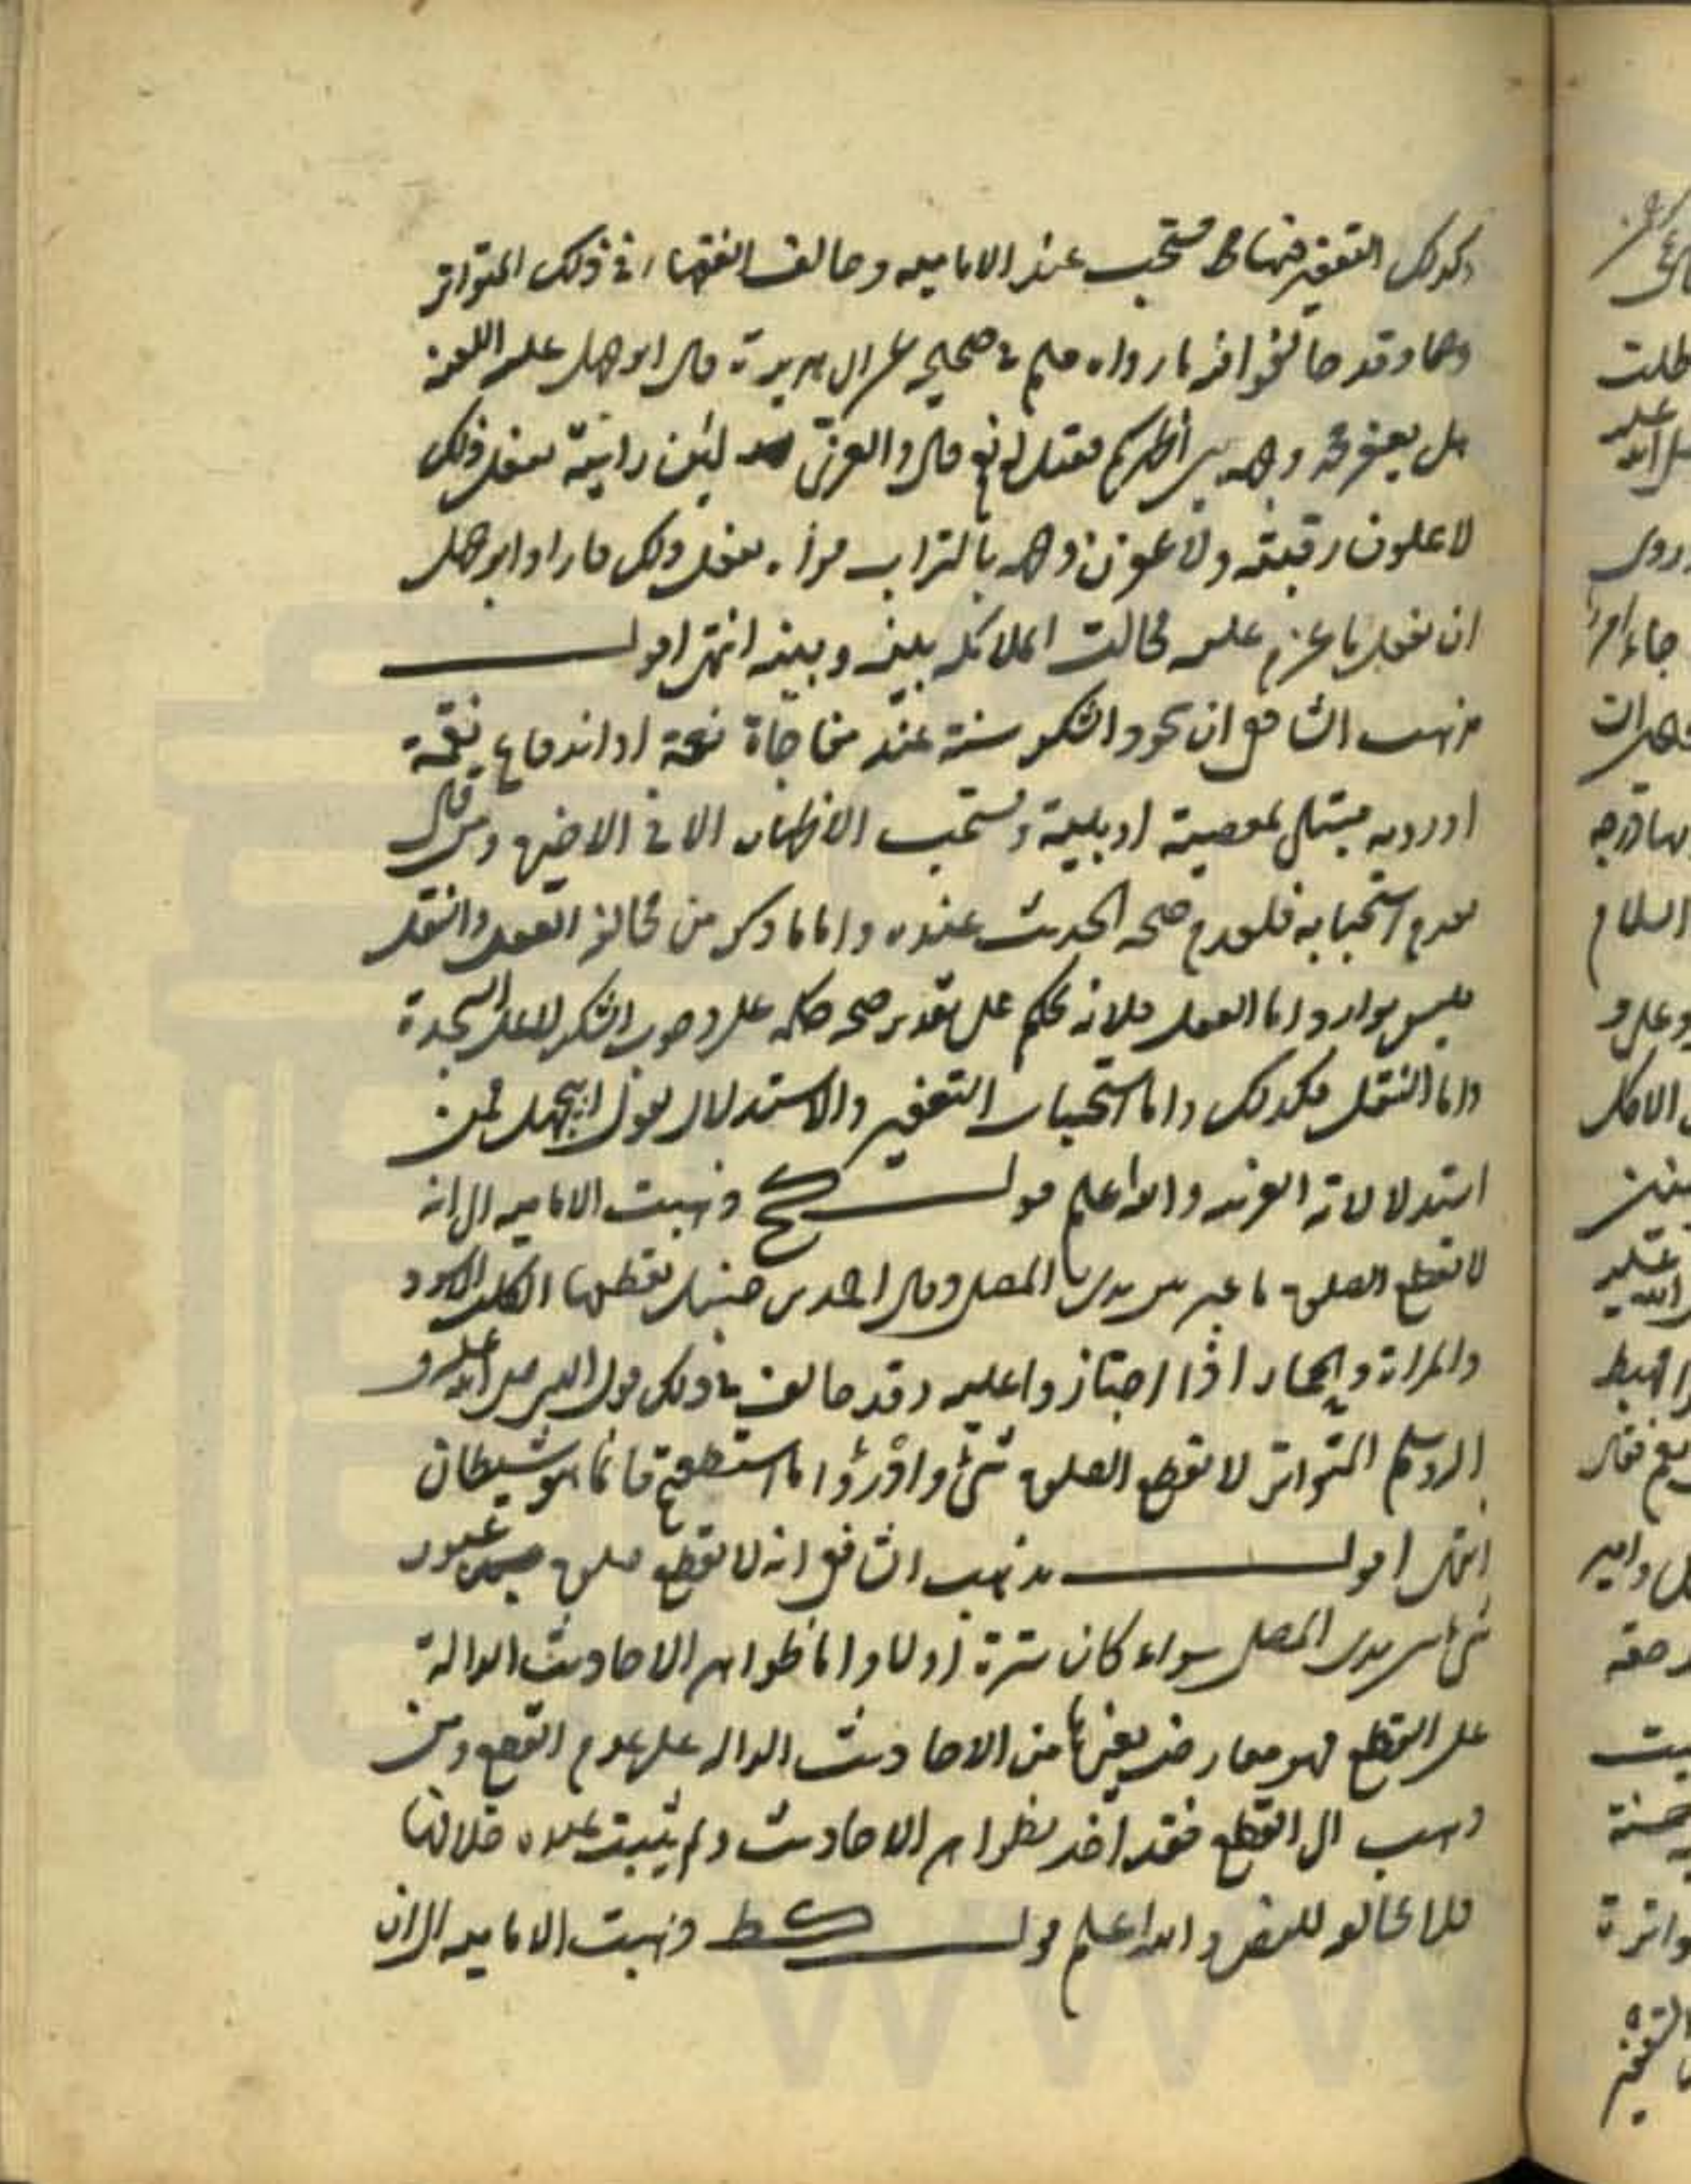 وكذلك التعفير فيهما مستحب عند الامامية وخالف الفقهاء في ذلك المتواتر
وقد خالفوا فيه ما رواه مسلم في صحيحه عن ابي هريرة قال ابو جهل عليه اللعنة
هل يعفر محمد وجهه بين أظهركم فقيل له نعم قال والعزى لئن رايته يفعل ذلك
لاعلون رقبته ولاعفرن وجهه بالتراب يفعل ذلك فاراد ابو جهل
ان يفعل ما عزم عليه فحالت الملائكة بينه وبينه انتهى اقول
مذهب الشافعي ان سجود الشكر سنة عند مفاجاة نعمة او اندفاع نقمة
او رؤية مبتلى بمعصية او بلية ويستحب الاظهار الا في الاخير ومن قال
بعدم استحبابه فلعدم صحة الحديث عنده واما ما ذكر من مخالفة العقل والنقل
فليس بوارد اما العقل فلانه يحكم على تقدير صحة حكمه على وجوب الشكر لا على السجدة
واما النقل فكذلك واما استحباب التعفير والاستدلال بقول ابي جهل فمن
استدلالاته الغريبة والله اعلم قوله كح ذهبت الامامية الى انه
لا يقطع الصلوة ما عبر بين يدي المصلي وقال احمد بن حنبل يقطعها الكلب الاسود
والمراة والحمار اذا اجتازوا عليه وقد خالف في ذلك قول النبي صلى الله عليه و
اله وسلم المتواتر لا يقطع الصلوة شئ وادرؤا ما استطعتم فانما هو شيطان
انتهى اقول مذهب الشافعي انه لا يقطع صلوة عبور
شئ بين يدي المصلي سواء كان سترة أو لا واما ظواهر الاحاديث الدالة
على القطع فهو معارض بغيرها من الاحاديث الدالة على عدم القطع ومن
ذهب الى القطع فقد اخذ بظواهر الاحاديث ولم يثبت عنده خلافها
فلا مخالفة للنص والله اعلم قوله كط ذهبت الامامية الى ان